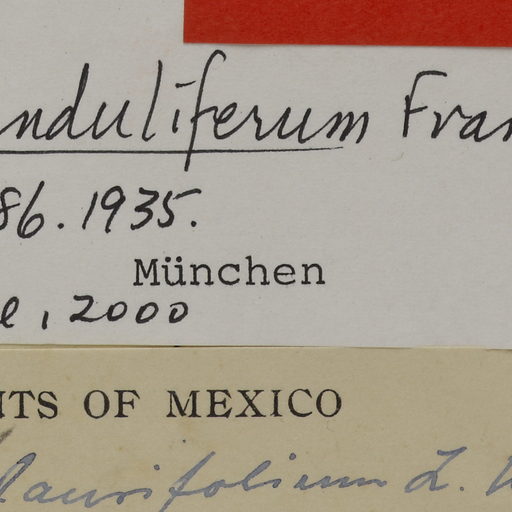 nduliferum Fran
86.1935.
München
e, 2000
NTS OF MEXICO
laurifolium L.